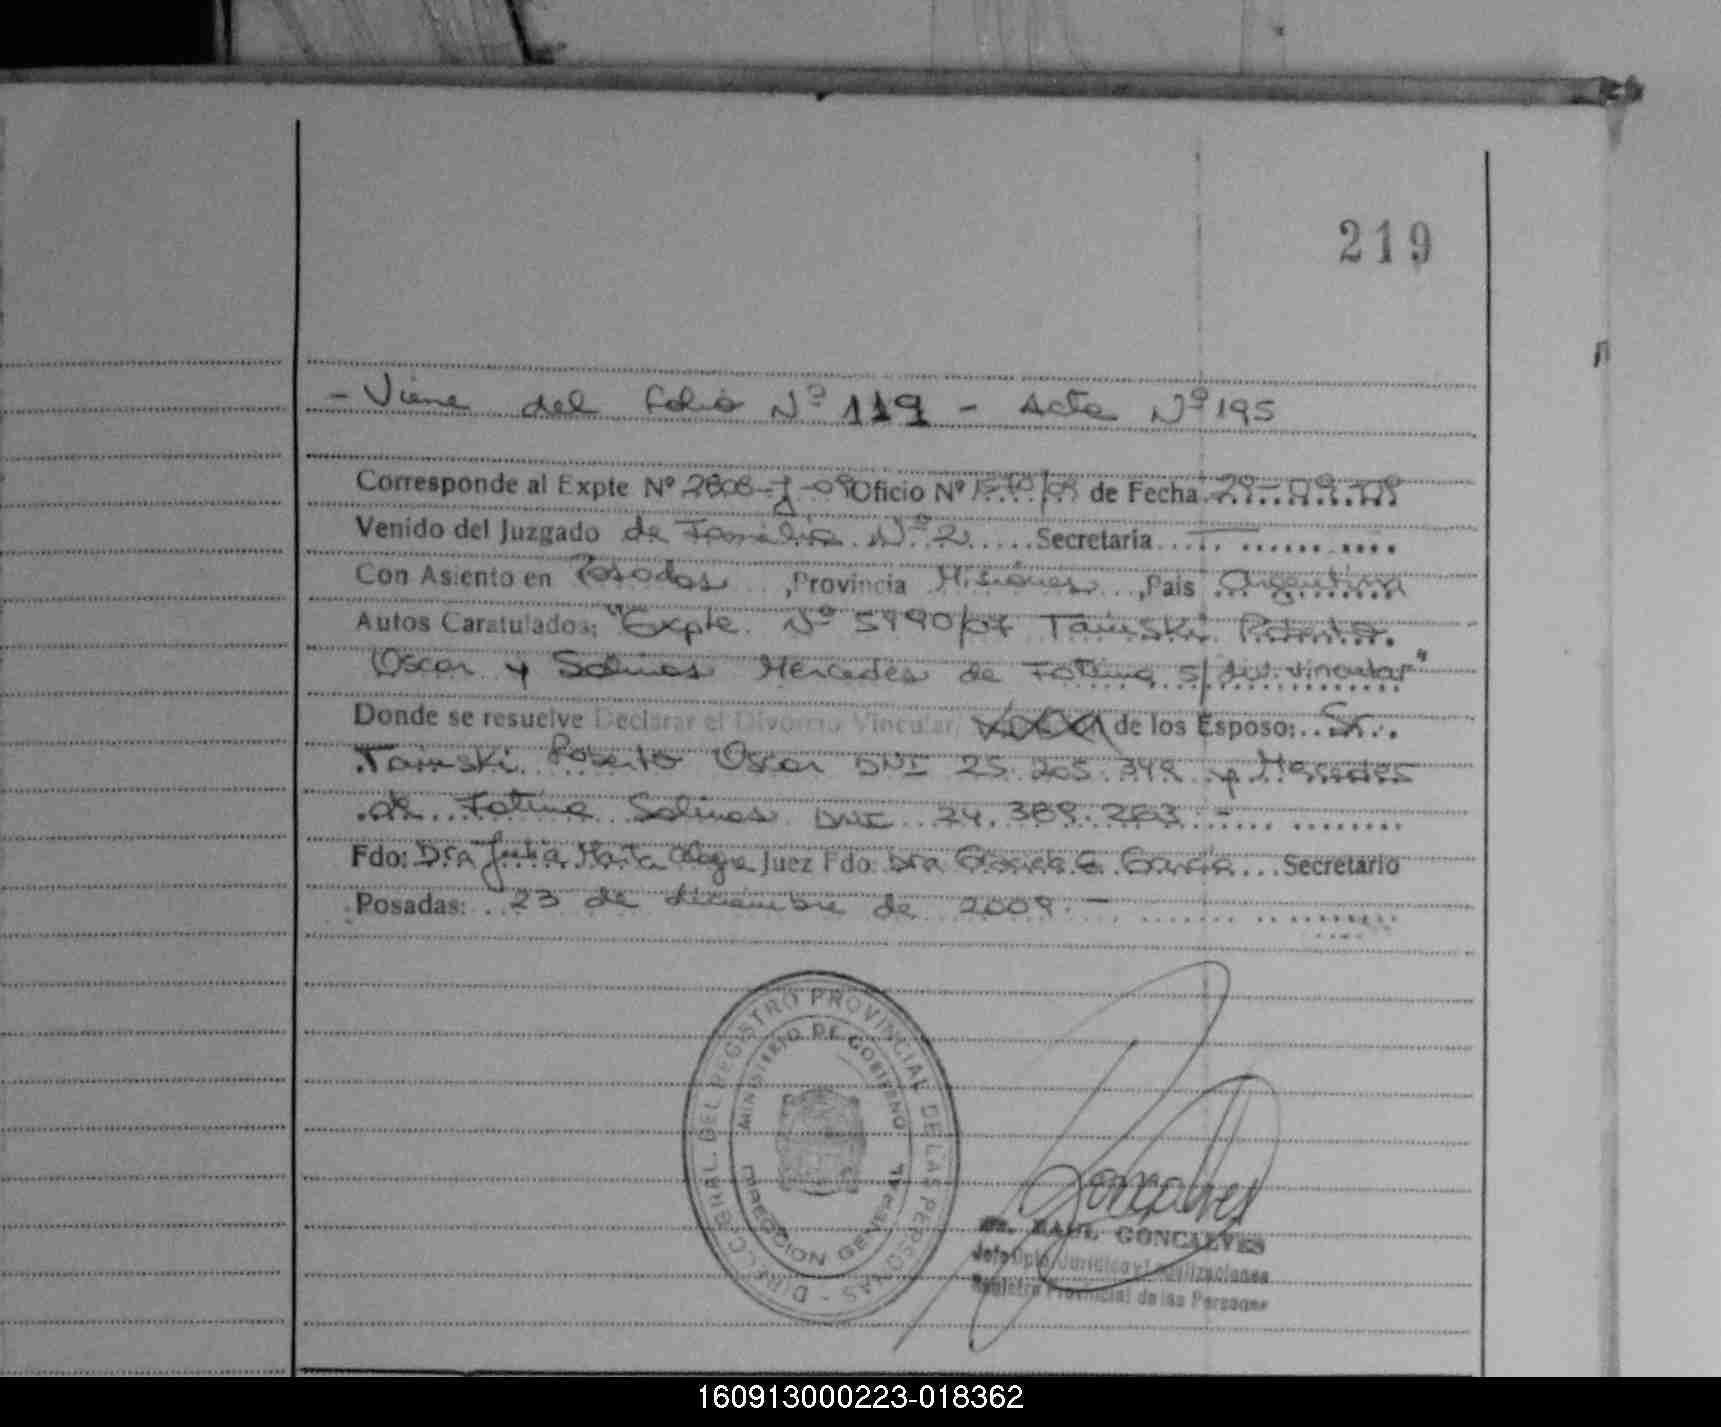 219
- Viene del folio Nº 119 - Acta Nº 195
Corresponde al Expte Nº 2808- -09 Oficio Nº /09 de Fecha
Venido del Juzgado de Familia Nº 2 Secretaria
Con Asiento en Posadas, Provincia Misiones, Pais Argentina
Autos Caratulados; "Expte. Nº 5990/07 Roberto
Oscar y Salinas Mercedes de Fatima s/ div. vincular"
Donde se resuelve Declarar el Divorcio Vincular, de los Esposo: Sr.
Roberto Oscar DNI 25.205.348 y Mercedes
de Fatima Salinas DNI 24.389.263 -
Fdo: Dra Marta Juez Fdo. Dra G. Garcia Secretario
Posadas: 23 de diciembre de 2009. -
DIRECC. GRAL. DEL REGISTRO PROVINCIAL DE LAS PERSONAS -
MINISTERIO DE GOBIERNO
DIRECCION GENERAL
Goncalves
RAUL GONCALVES
Jefe Dpto. Juridico y
Registro Provincial de las Personas
160913000223-018362